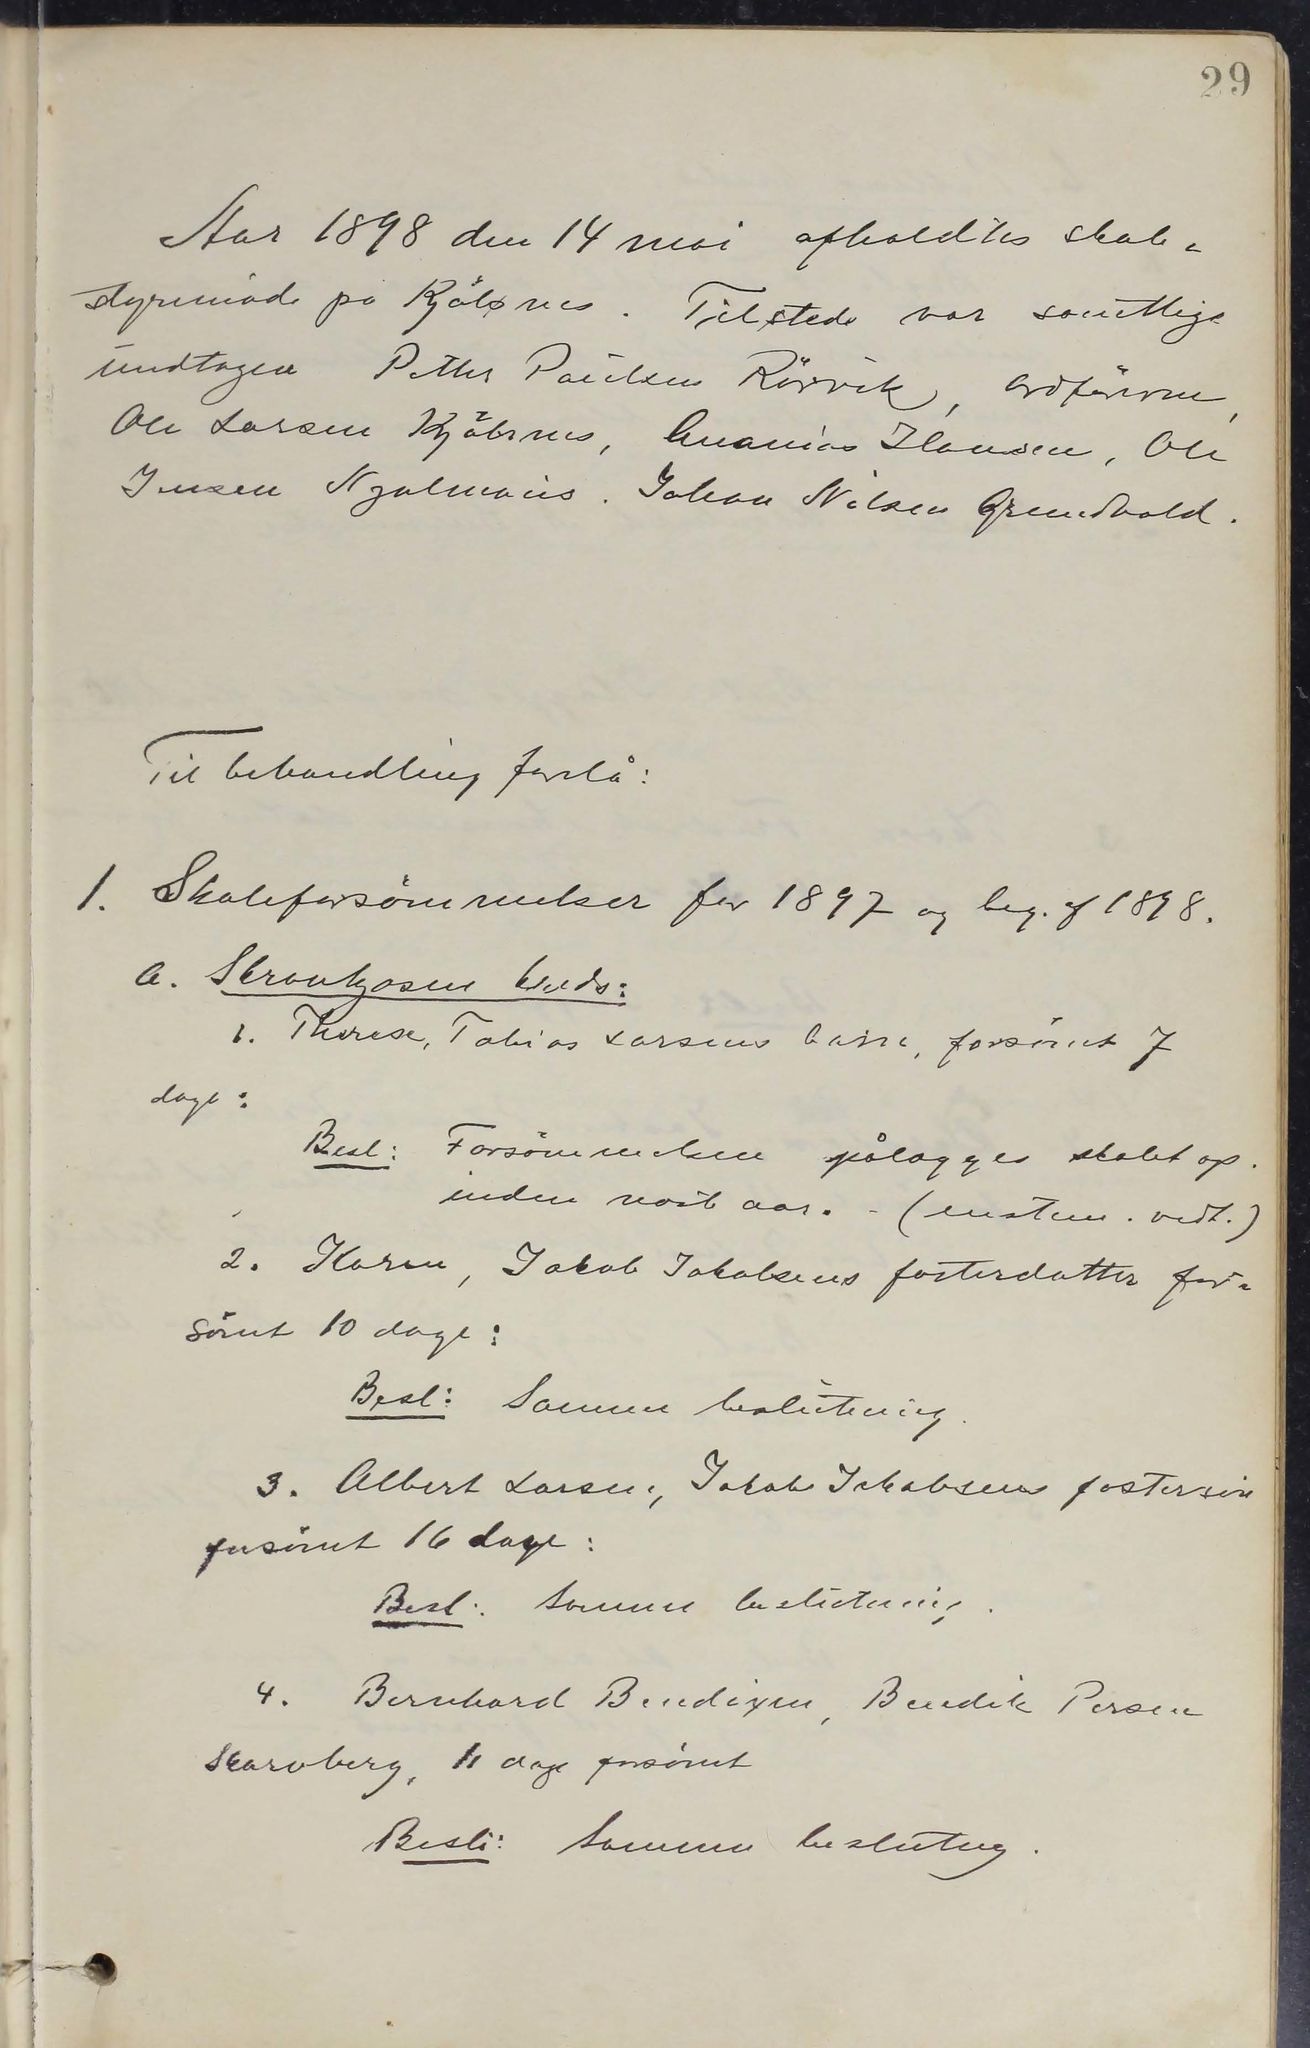 29
Aar 1898 den 14 mai afholdtes skole-
styremöde på Kjölsnes. Tilstede var samtlige
undtagen Petter Paulsen Rörvik, ordföreren,
Ole Larsen Kjölsnes, Ananias Hansen, Ole
Jensen Njalmans. Johan Nilsen Grundvold.
Til behandling forelå:
1. Skoleforsömmelser for 1897 og beg. af 1898.
a. kreds:
1. Therese, Tobias Larsens barn, forsömt 7
dage:
Besl: Forsömmelsen pålægges skolet op.
inden næste aar. - (enstem. vedt.)
2. Karen, Jakob Jakobsens fosterdatter for-
sömt 10 dage:
Besl: Samme beslutning.
3. Albert Larsen, Jakob Jakobsens fostersön
forsömt 16 dage:
Besl: Samme beslutning.
4. Bernhard Bendixen, Bendik Persen
Skarvberg, 11 dage forsömt
Besl: Samme beslutng.